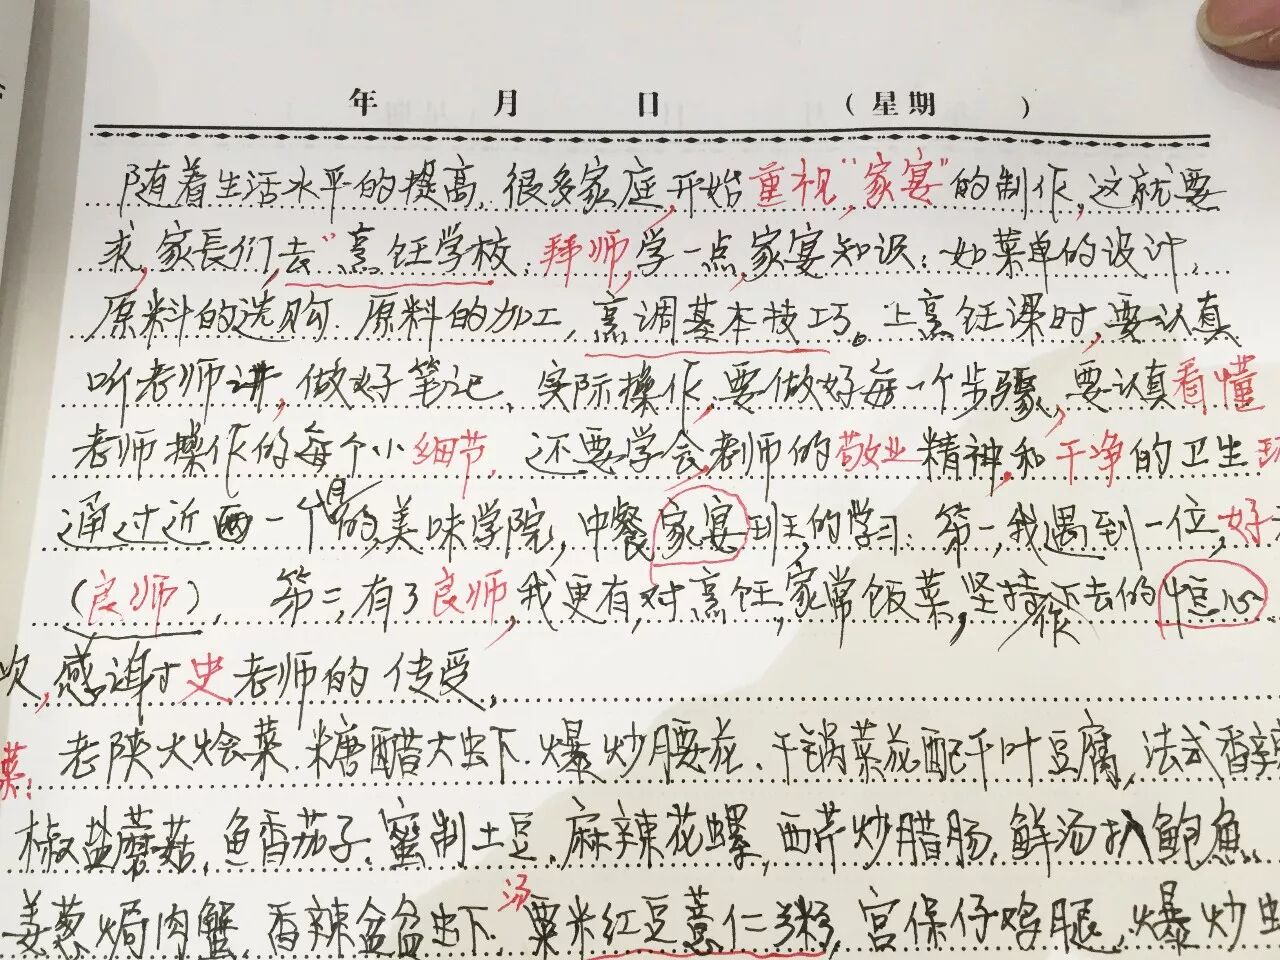 年 月 日 (星期 )
随着生活水平的提高,很多家庭,开始重视,"家宴"的制作,这就要
求,家長们,去"烹饪学校,拜师,学一点,家宴知识:如菜单的设计,
原料的选购.原料的加工,烹调基本技巧。上烹饪课时,要认真
听老师讲,做好笔记、实际操作,要做好每一个步骤,要认真看懂
老师操作的每个小细节.还要学会,老师的敬业精神,和干净的卫生
通过近两一个月的,美味学院,中餐家宴班,的学习:第一,我遇到一位,好
(良师), 第二,有了良师,我更有,对烹饪,家常饭菜,坚持作下去的恒心
次,感谢史老师的传受,
菜:老陕火烩菜.糖醋大虫下.爆炒腰花.干锅菜花配千叶豆腐,法式香辣
椒盐蘑菇,鱼香茄子.蜜制土豆.麻辣花螺,西芹炒腊肠,鲜汤扒鲍魚
姜葱焗肉蟹.香辣盆盆虫下.汤粟米红豆薏仁粥,宫保仔鸡腿.爆炒